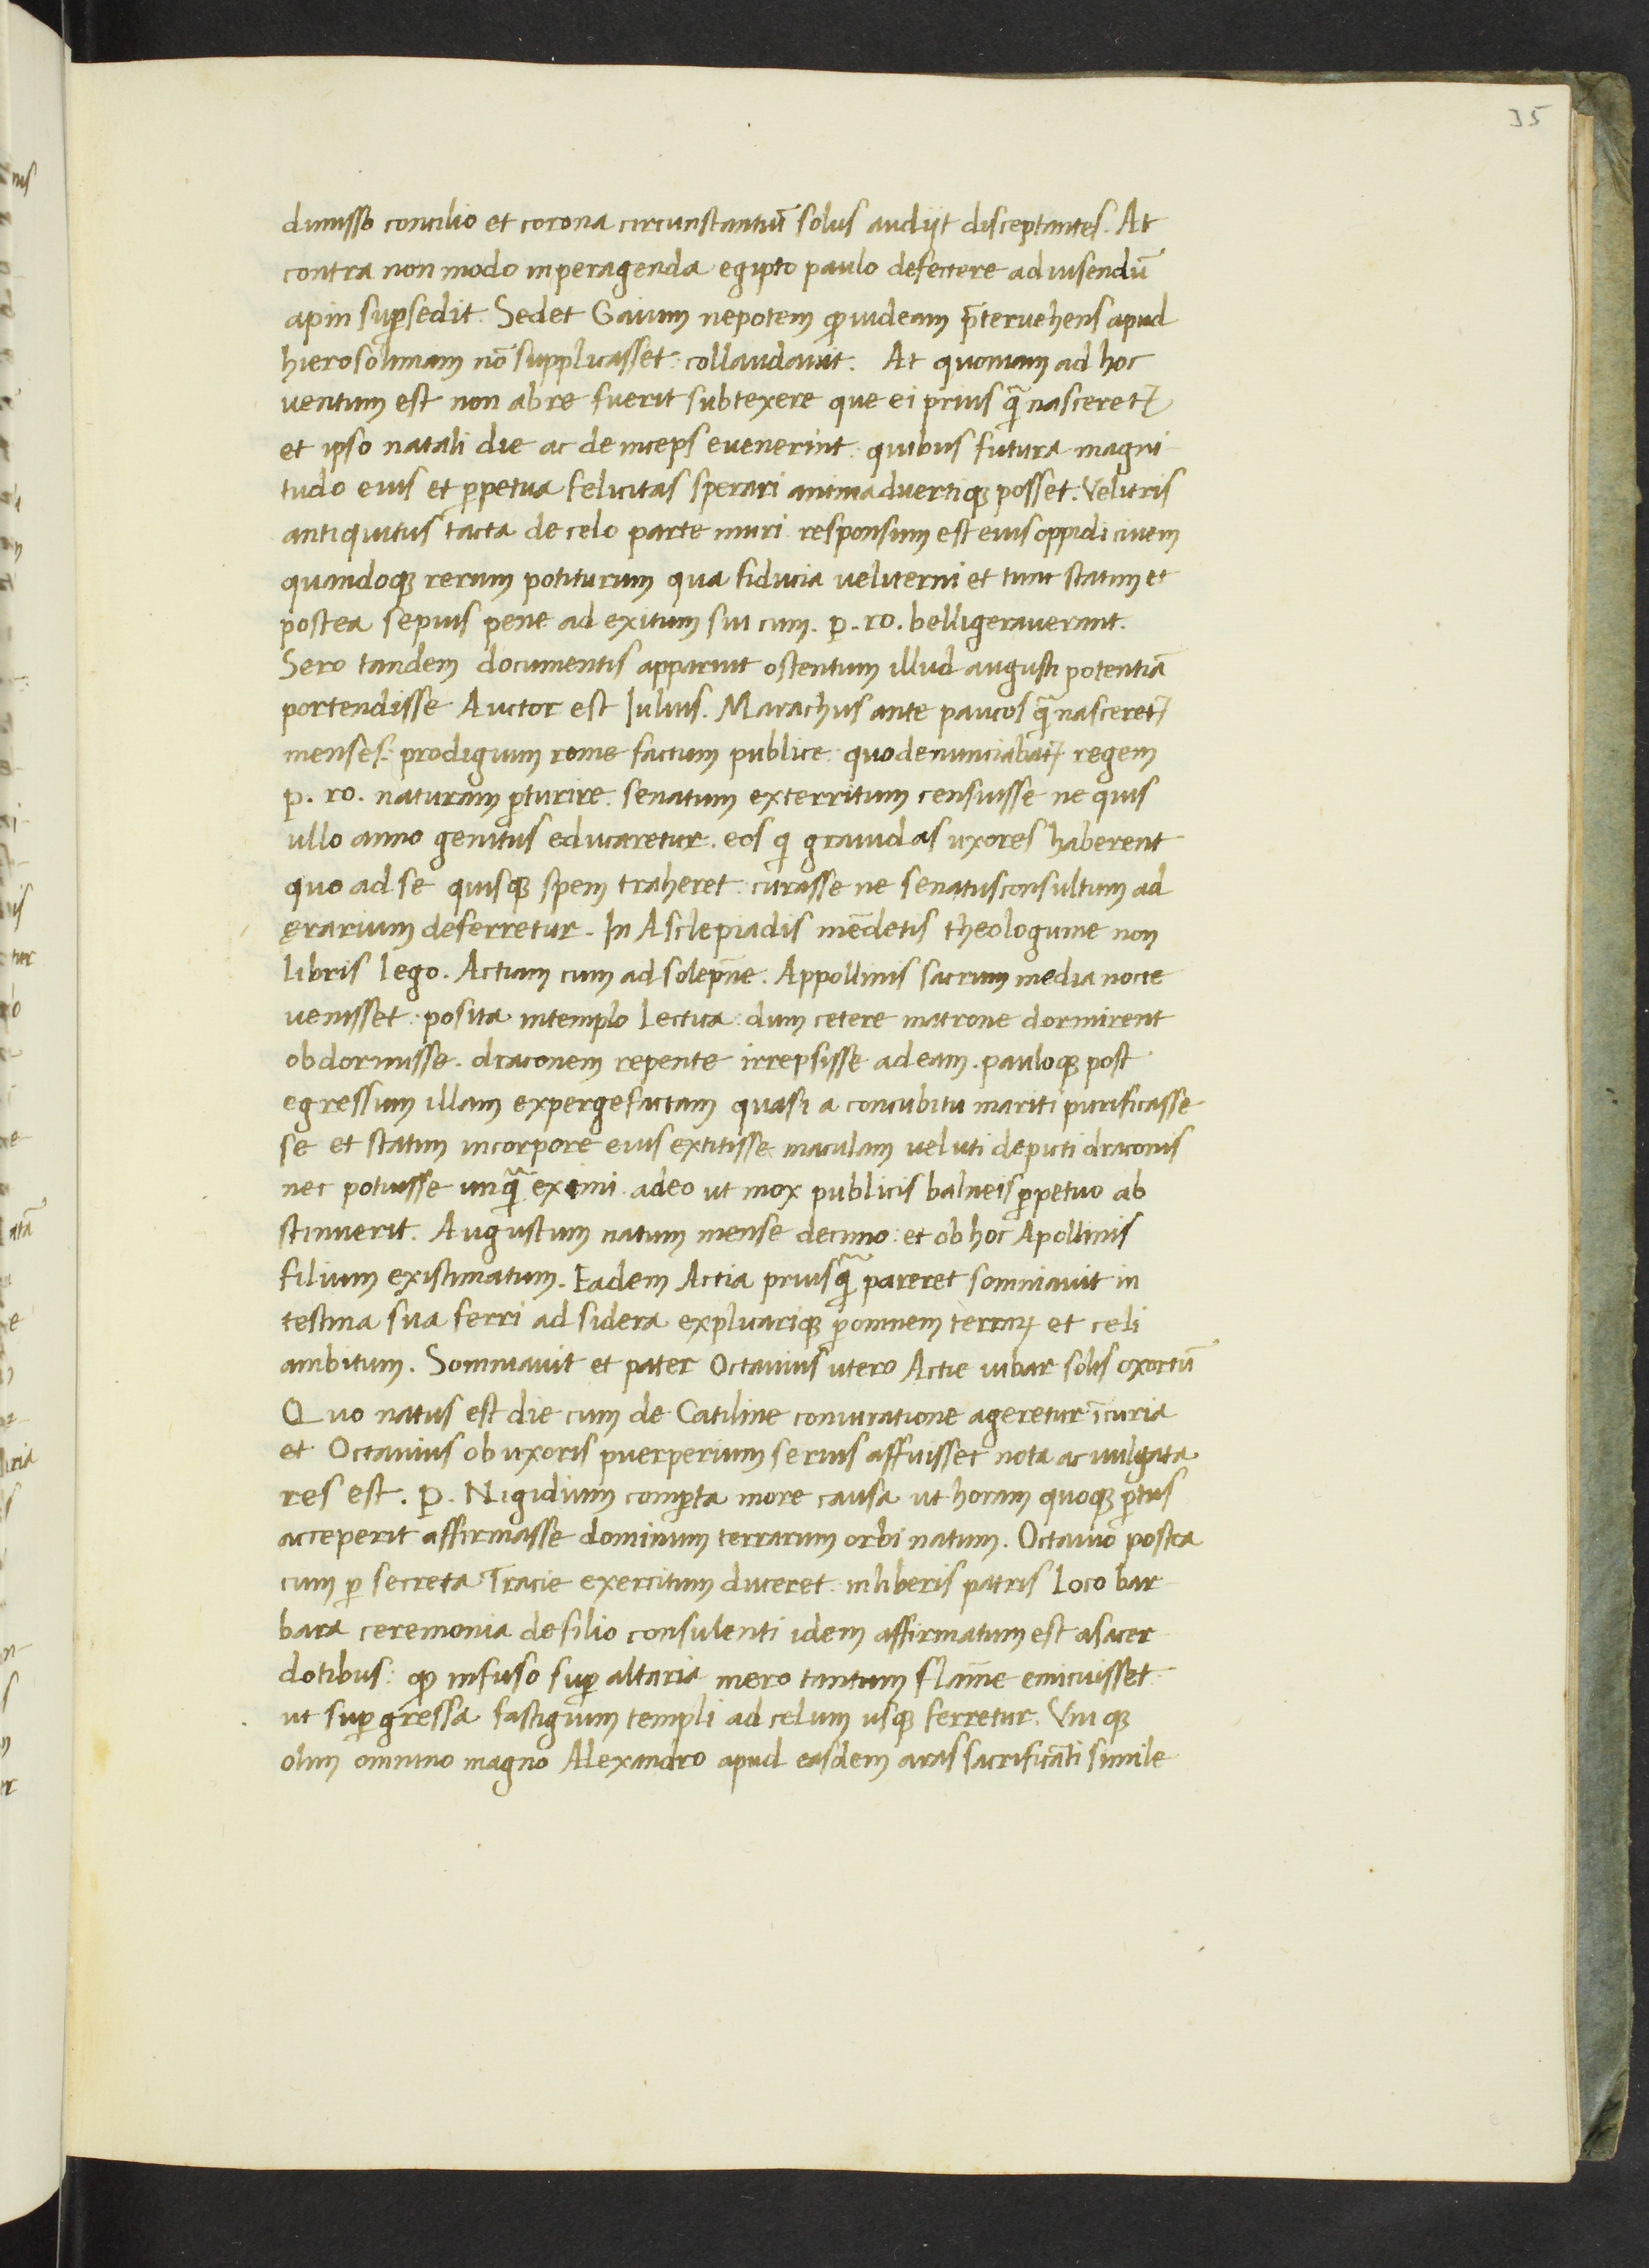 35
dimisso concilio et corona circunstantiū solus audijt disceptantes. At
contra non modo in peragenda egipto paulo deflectere ad uisendū
apin suꝑsedit. Sed et Gaium nepotem ꝙ iudeam p̄teruehens apud
hierosolimam nō supplicasset: collaudauit. At quoniam ad hoc
uentum est non abre fuerit subtexere que ei prius q̄ nasceretꝛ
et ipso natali die ac deinceps euenerint: quibus futura magni
tudo eius et ꝑpetua felicitas sperari animaduertiqꝫ posset. Velitris
antiquitus tacta de celo parte muri responsum est eius oppidi ciuem
quandoqꝫ rerum potiturum qua fiducia veliterni et tunc statim et
postea sepius pene ad exitum sui cum. p. ro. belligerauerant.
Sero tandem documentis apparuit ostentum illud augusti potentiā
portendisse Auctor est Iulius. Marachus ante paucos q̄ nasceretꝛ
menses: prodigium rome factum publice: quo denunciabatꝛ regem
p. ro. naturam ꝑturire. senatum exterritum censuisse ne quis
ullo anno genitus educaretur. eos qi grauidas uxores haberent
quo ad se quisqꝫ spem traheret: curasse ne senatusconsultum ad
ęrarium deferretur. In Asclepiadis mēdetis theologume non
libris lego. Actiam cum ad solepn̄e. Appollinis sacrum media nocte
uenisset: posita in templo lectica: dum cetere matrone dormirent
obdormisse. draconem repente irrepsisse ad eam. pauloqꝫ post
egressum illam expergefactam quasi a concubitu mariti purificasse
se et statim in corpore eius extitisse maculam veluti depicti draconis
nec potuisse unq̄ eximi adeo ut mox publicis balneis ꝑpetuo ab
stinuerit. Augustum natum mense decimo: et ob hoc Apollinis
filium existimatum. Eadem Actia priusq̄ pareret somniauit in
testina sua ferri ad sidera explicariqꝫ ꝑ omnem terraꝝ et celi
ambitum. Somniauit et pater Octauius utero Actie iubar solis exortū
Quo natus est die cum de Catiline coniuratione ageretur ī curia
et Octauius ob uxoris puerperium serius affuisset nota ac uulgata
res est. P. Nigidium comꝑta more causa ut horam quoqꝫ ꝑtus
acceperit affirmasse dominum terrarum orbi natum. Octauio postea
cum ꝑ secreta Tracie exercitum duceret in liberis patris loco bar
bara ceremonia de filio consulenti idem affirmatum est a sacer
dotibus: ꝙ infuso suꝑ altaria mero tantum flam̄e emicuisset
ut suꝑgressa fastigium templi ad celum usqꝫ ferretur. Vni qꝫ
olim omnino magno Alexandro apud easdem aras sacrificāti simile